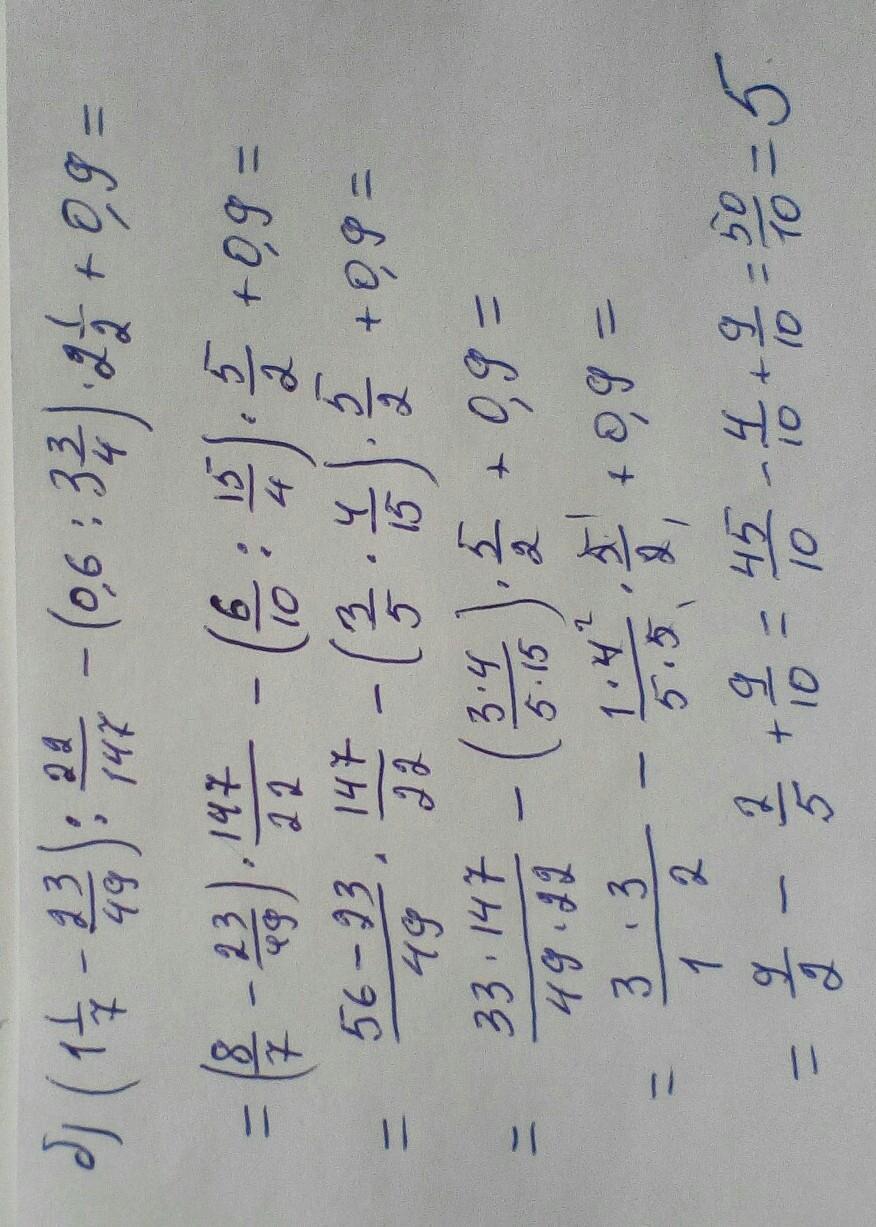 б) (1 1/7 - 23/49) : 22/147 - (0,6 : 3 3/4) · 2 1/2 + 0,9 =
= (8/7 - 23/49) · 147/22 - (6/10 : 15/4) · 5/2 + 0,9 =
= (56 - 23)/49 · 147/22 - (3/5 · 4/15) · 5/2 + 0,9 =
= (33 · 147)/(49 · 22) - ((3 · 4)/(5 · 15)) · 5/2 + 0,9 =
= (3 · 3)/(1 2) - (1 · 4²)/(5 · 5₁) · 5¹/2₁ + 0,9 =
= 9/2 - 2/5 + 9/10 = 45/10 - 4/10 + 9/10 = 50/10 = 5